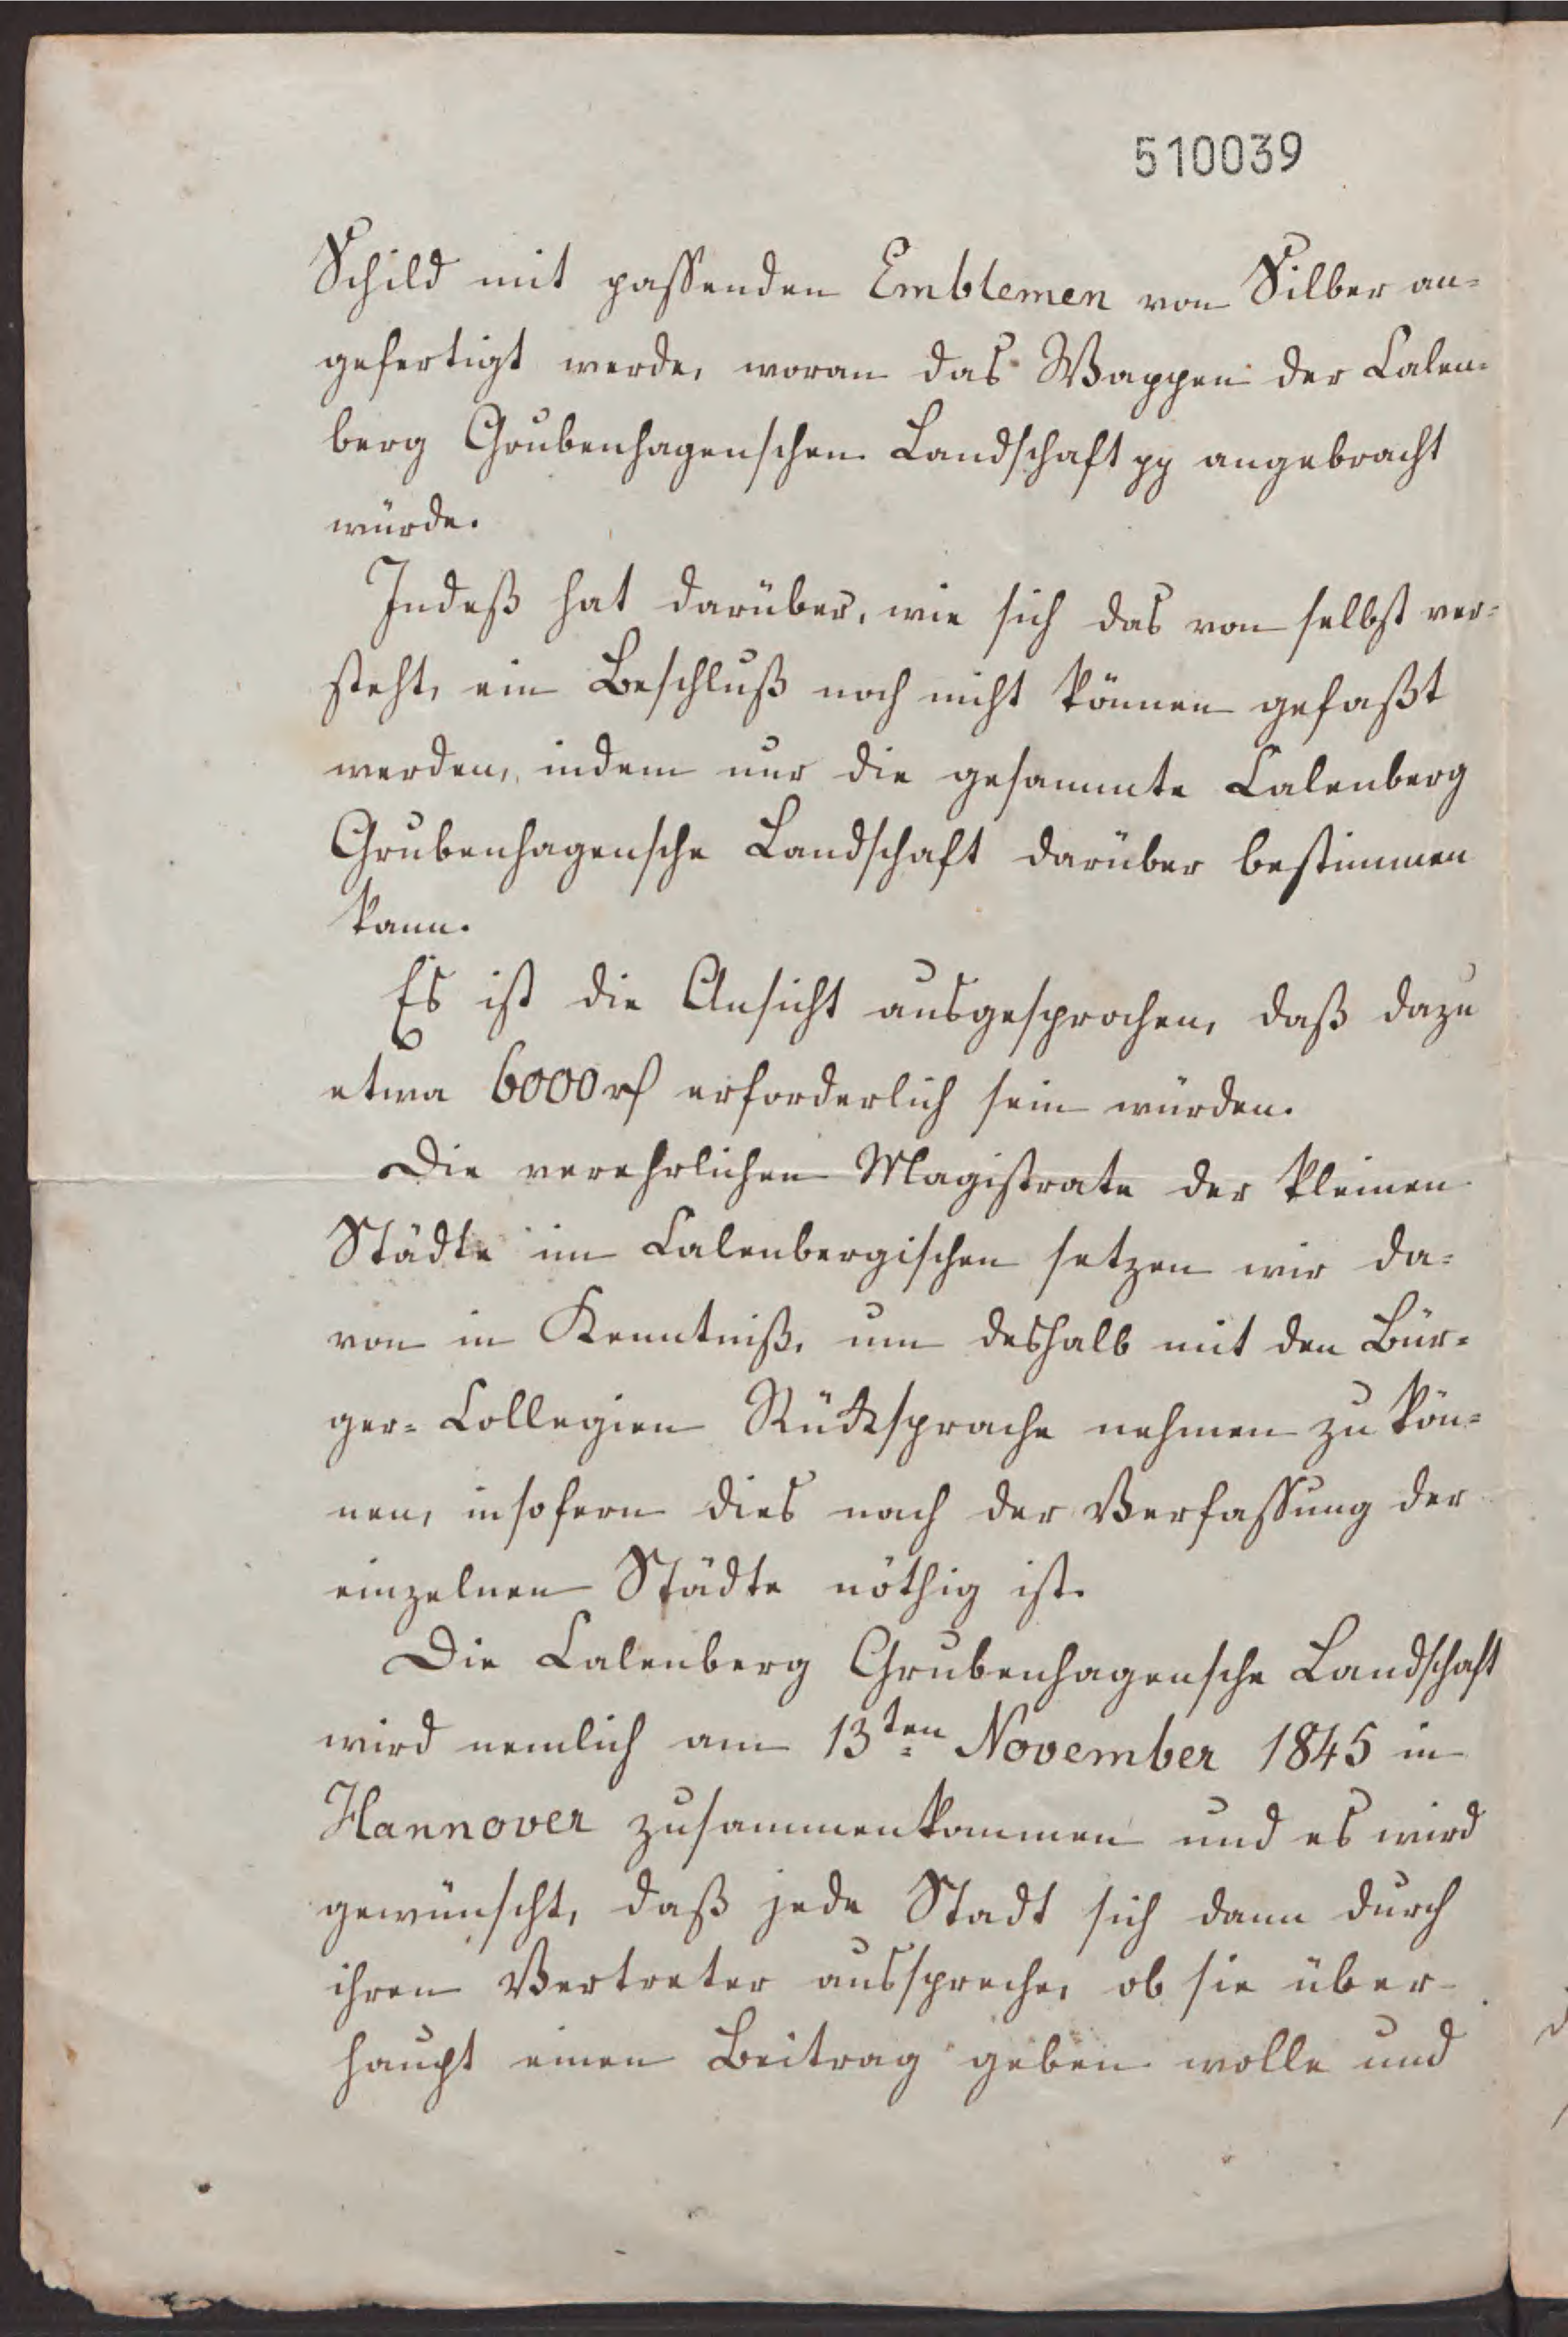 510039
Schild mit passenden Emblemen von Silber an=
gefertigt werde, woran das Wappen der Calen=
berg Grubenhagenschen Landschaft pp angebracht
würde.
Indeß hat darüber, wie sich das von selbst ver=
steht, ein Beschluß noch nicht können gefaßt
werden, indem nur die gesammte Calenberg
Grubenhagensche Landschaft darüber bestimmen
kann.
Es ist die Ansicht ausgesprochen, daß dazu
etwa 6000 rf erforderlich sein würden.
Die verehrlichen Magistrate der kleinen
Städte im Calenbergischen setzen wir da=
von in Kenntniß, um deshalb mit den Bür=
ger= Collegien Rücksprache nehmen zu kön=
nen, insofern dies nach der Verfassung der
einzelnen Städte nöthig ist.
Die Calenberg Grubenhagensche Landschaft
wird nemlich am 13ten November 1845 in
Hannover zusammenkommen und es wird
gewünscht, daß jede Stadt sich dann durch
ihren Vertreter ausspreche, ob sie über-
haupt einen Beitrag geben wolle und